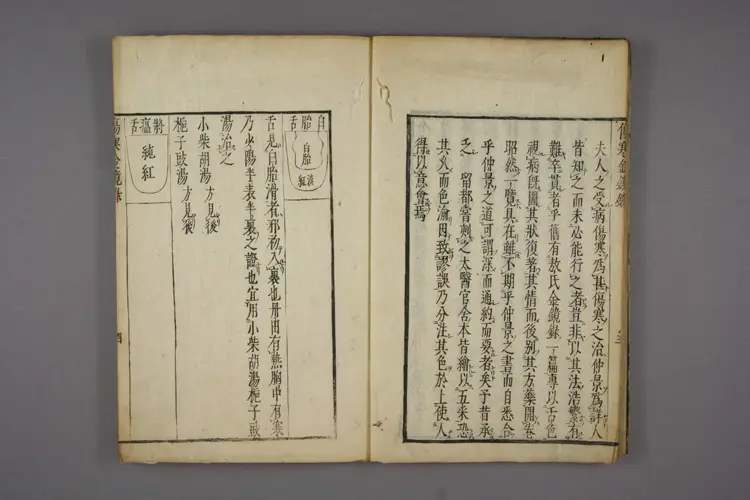 傷寒金鏡錄
夫人之受病傷寒為甚傷寒之治仲景為詳人
皆知之而未必能行之者豈非以其法浩繁有
難卒貫者乎舊有敖氏金鏡錄一篇專以舌色
視病既圖其狀復著其情而後別其方藥開卷
昭然一覽具在雖不期乎仲景之書而自悉合
乎仲景之道可謂深而通約而要者矣予昔承
乏 留都嘗刻之太醫官舍本皆繪以五采恐
其久而色渝因致謬誤乃分注其色於上使人
得以意會焉
白胎舌
白胎
滇紅
舌見白胎滑者邪初入裏也丹田有熱胸中有寒
乃少陽半表半裏之證也宜用小柴胡湯梔子豉
湯治之
小柴胡湯 方見後
梔子豉湯 方見後
將瘟舌
純紅
傷寒金鏡錄
四